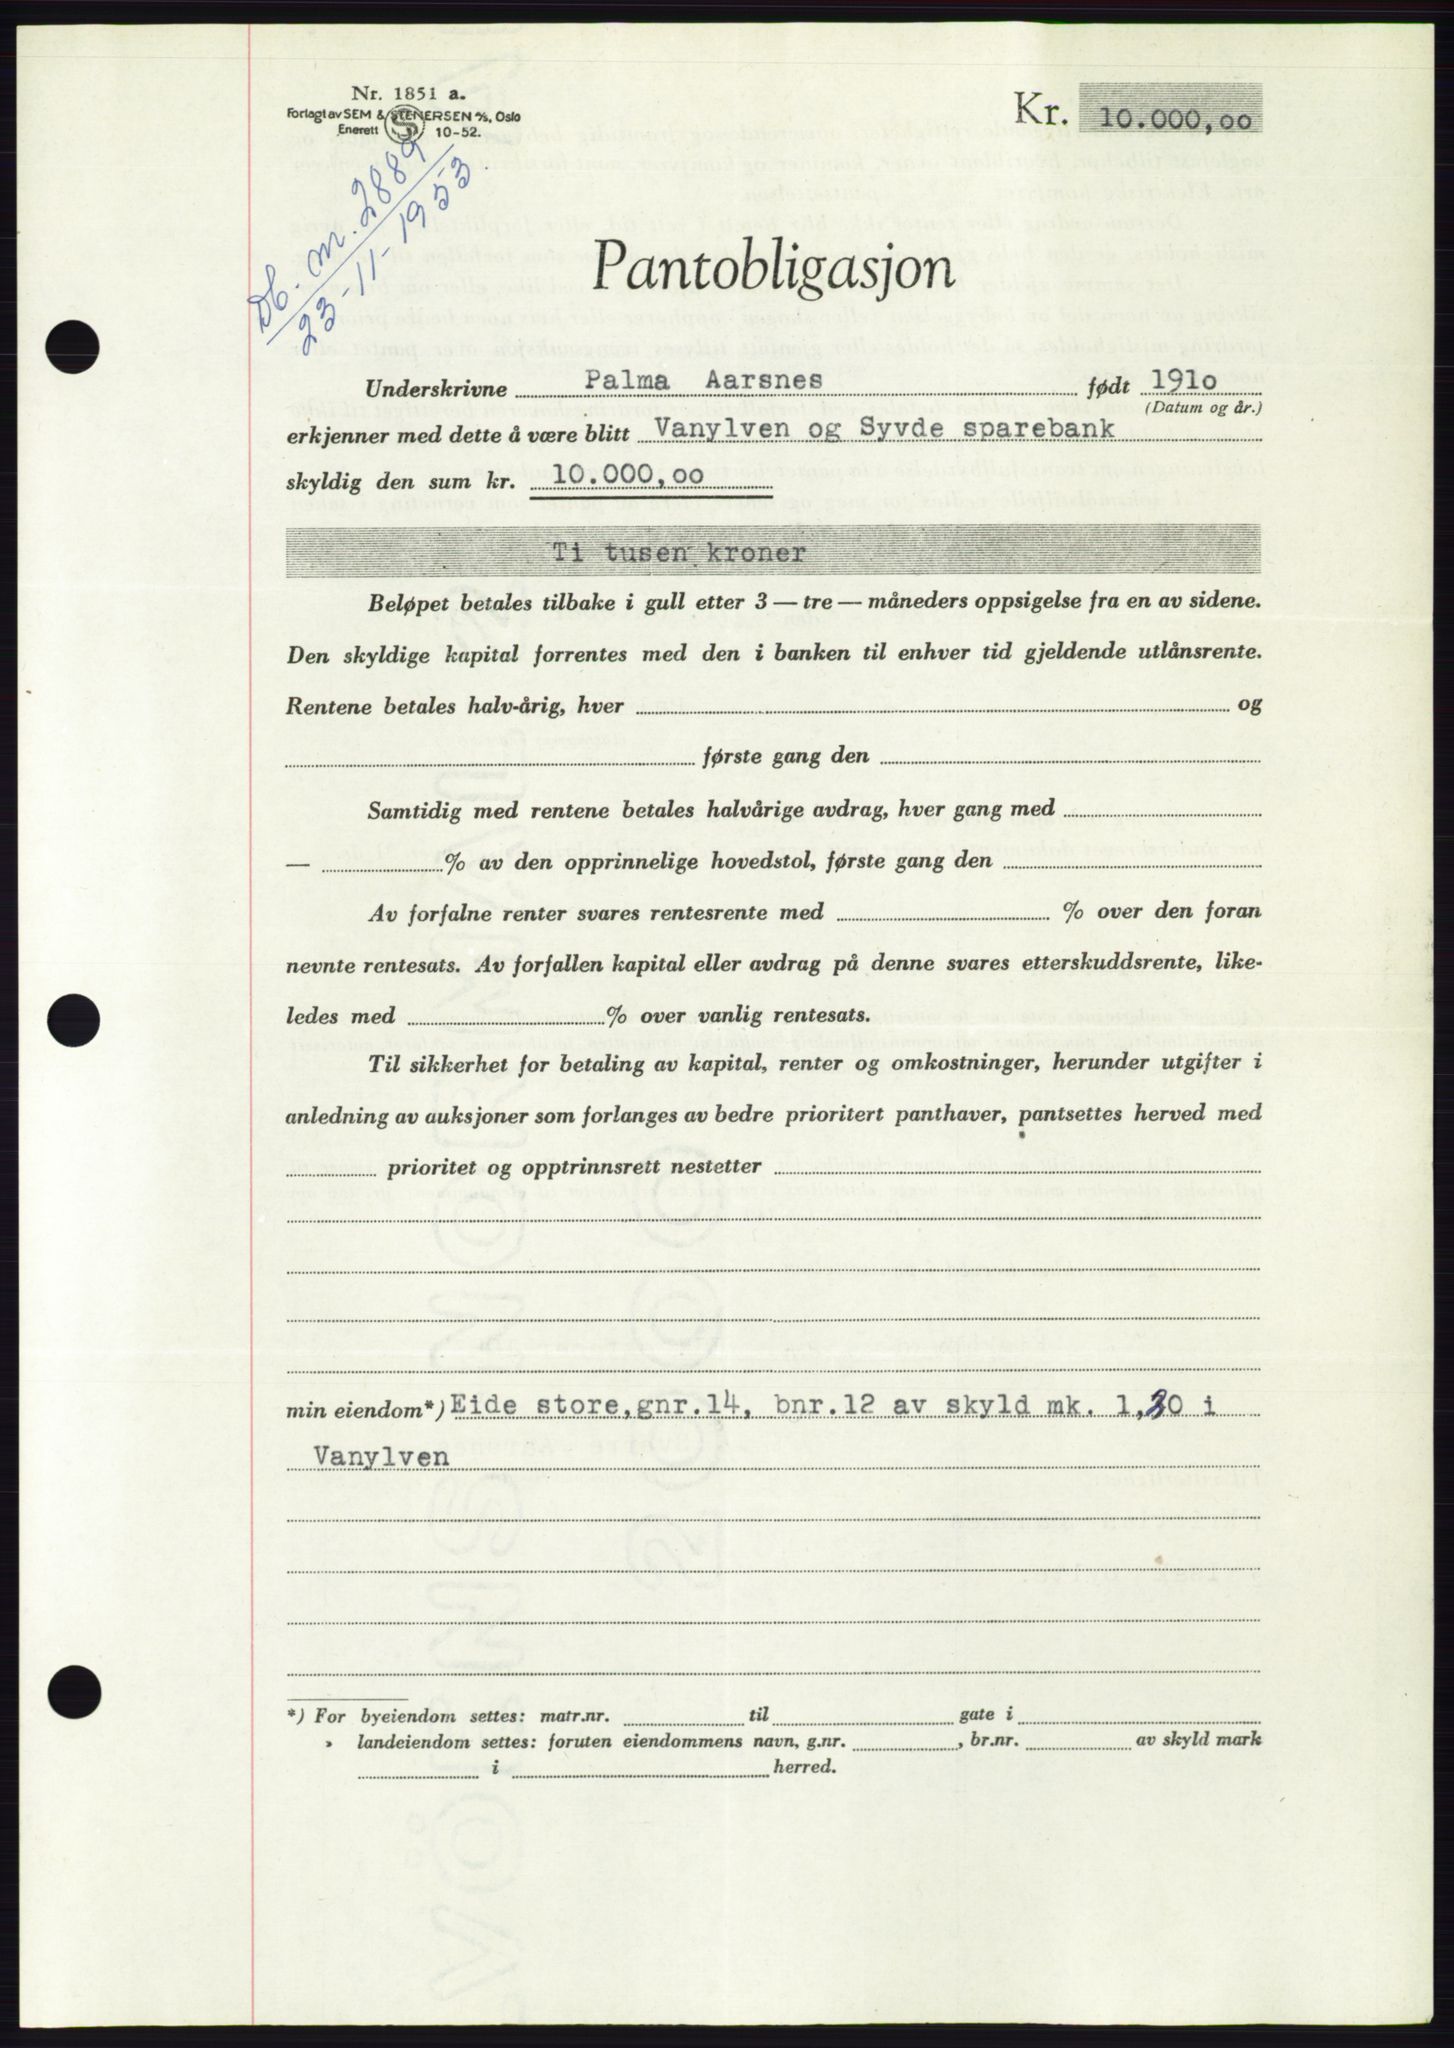 Nr. 1851 a.
Forlagt av SEM & STENERSEN A/S, Oslo
Enerett S 10-52.
Kr. 10.000,oo
Db. nr. 2889
23-11-1953.
Pantobligasjon
Underskrivne Palma Aarsnes født 191o
(Datum og år.)
erkjenner med dette å være blitt Vanylven og Syvde sparebank
skyldig den sum kr. 10.000,oo
Ti tusen kroner
Beløpet betales tilbake i gull etter 3 — tre — måneders oppsigelse fra en av sidene.
Den skyldige kapital forrentes med den i banken til enhver tid gjeldende utlånsrente.
Rentene betales halv-årig, hver og
første gang den
Samtidig med rentene betales halvårige avdrag, hver gang med
— % av den opprinnelige hovedstol, første gang den
Av forfalne renter svares rentesrente med % over den foran
nevnte rentesats. Av forfallen kapital eller avdrag på denne svares etterskuddsrente, like-
ledes med % over vanlig rentesats.
Til sikkerhet for betaling av kapital, renter og omkostninger, herunder utgifter i
anledning av auksjoner som forlanges av bedre prioritert panthaver, pantsettes herved med
prioritet og opptrinnsrett nestetter
min eiendom*) Eide store, gnr. 14, bnr. 12 av skyld mk. 1,30 i
Vanylven
*) For byeiendom settes: matr.nr. til gate i
» landeiendom settes: foruten eiendommens navn, g.nr. , br.nr. av skyld mark
i herred.